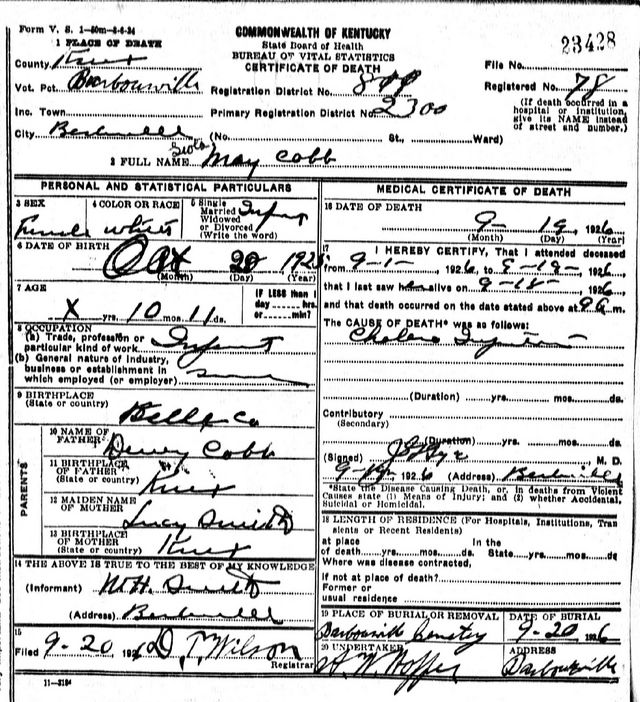 Form V. S. 1-50m-3-6-24
COMMONWEALTH OF KENTUCKY
State Board of Health
BUREAU OF VITAL STATISTICS
CERTIFICATE OF DEATH
23428
1 PLACE OF DEATH
County Knox
File No.
Vot. Pct. Barbourville
Registration District No.
Registered No. 78
Primary Registration District No. 2300
(If death occurred in a hospital or institution, give its NAME instead of street and number.)
Inc. Town
City
(No. St., Ward)
2 FULL NAME May Cobb
PERSONAL AND STATISTICAL PARTICULARS
3 SEX Female
4 COLOR OR RACE White
5 Single
Married
Widowed
or Divorced
(Write the word)
Infant
6 DATE OF BIRTH
Oct 20 1925
(Month) (Day) (Year)
7 AGE
X yrs. 10 mos. 11 ds.
IF LESS than 1
day hrs.
or min?
8 OCCUPATION
(a) Trade, profession or
particular kind of work Infant
(b) General nature of industry,
business or establishment in
which employed (or employer)
9 BIRTHPLACE
(State or country)
Bell Co
PARENTS
10 NAME OF
FATHER Dewey Cobb
11 BIRTHPLACE
OF FATHER
(State or country) Knox
12 MAIDEN NAME
OF MOTHER
Lucy Smith
13 BIRTHPLACE
OF MOTHER
(State or country) Knox
14 THE ABOVE IS TRUE TO THE BEST OF MY KNOWLEDGE
(Informant) W.H. Smith
(Address)
15
Filed 9-20, 192 D. T. Wilson
Registrar
11-3184
MEDICAL CERTIFICATE OF DEATH
16 DATE OF DEATH
9 19, 1926
(Month) (Day) (Year)
17
I HEREBY CERTIFY, That I attended deceased
from 9-1-, 1926, to 9-19-, 1926,
that I last saw alive on 9-18-, 1926
and that death occurred on the date stated above at 9 a m.
The CAUSE OF DEATH* was as follows:
Cholera
(Duration) yrs. mos. ds.
Contributory
(Secondary)
(Duration) yrs. mos. ds.
(Signed) M. D.
9-19-, 1926 (Address)
*State the Disease Causing Death, or, in deaths from Violent
Causes state (1) Means of Injury; and (2) whether Accidental,
Suicidal or Homicidal.
18 LENGTH OF RESIDENCE (For Hospitals, Institutions, Tran
sients or Recent Residents)
at place In the
of death yrs. mos. ds. State yrs. mos. ds
Where was disease contracted,
If not at place of death?
Former or
usual residence
19 PLACE OF BURIAL OR REMOVAL
Barbourville Cemetery
DATE OF BURIAL
9-20, 1926
20 UNDERTAKER
ADDRESS
Barbourville